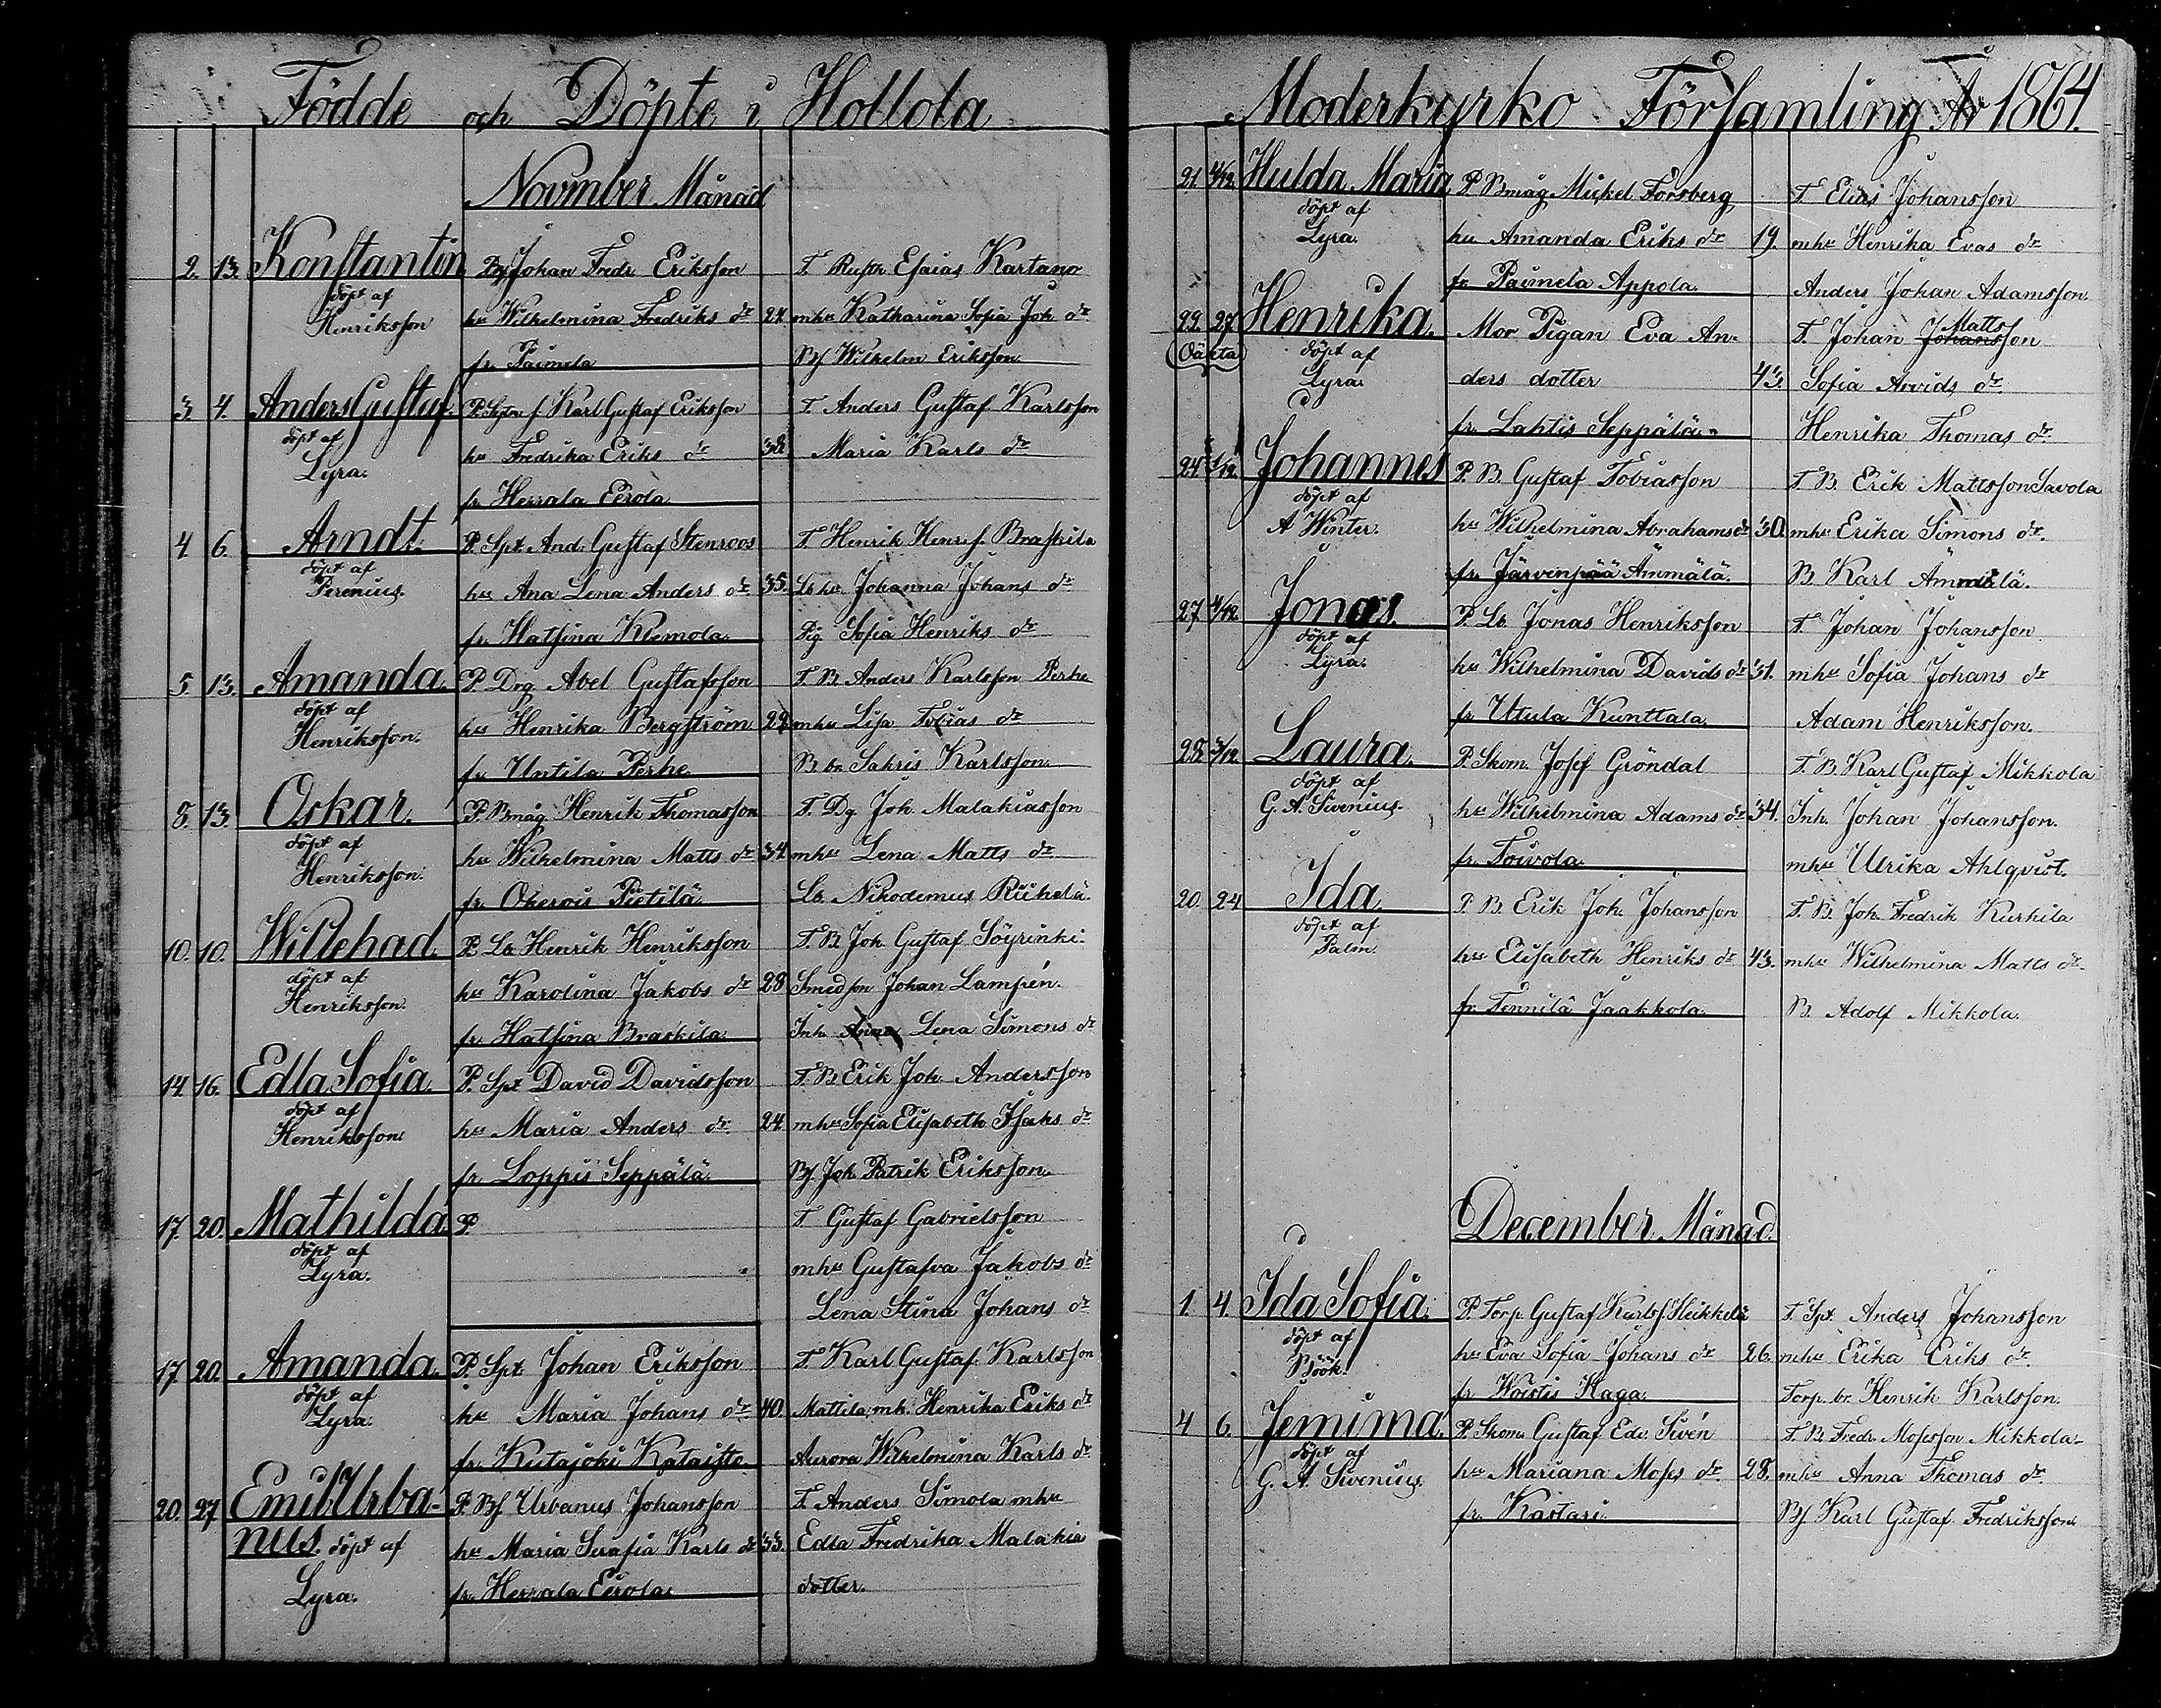 Födde och Döpte i Hollola
November Månad
2. 13. Konstantin Dg Johan Fredr. Eriksson T. Rusth. Esaias Kartano
döpt af
Henriksson hu Wilhelmina Fredriks dr 24. mhu Katharina Sofia Joh. dr
fr. Paimela Bs Wilhelm Eriksson
3. 4. Anders Gustaf. P. Sytn. s. Karl Gustaf Eriksson T. Anders Gustaf Karlsson
döpt af
Lyra. hu Fredrika Eriks dr 32. Maria Karls dr
fr. Herrala Eerola
4. 6. Arndt. P. Spt. And. Gustaf Stenroos T. Henrik Henrs. Braskila
döpt af
Perenius. hu Ana Lena Anders dr 35. Lb. hu Johanna Johans dr
fr. Hatsina Klemola. Pig. Sofia Henriks dr
5. 13. Amanda. P. Drg. Abel Gustafsson T. B. Anders Karlsson Perhe
döpt af
Henriksson. hu Henrika Bergström 29. mhu Lisa Tobias dr
fr. Untila Perhe B. br. Sakris Karlsson.
8. 13. Oskar. P. Bmåg Henrik Thomasson T. Dg. Joh. Malakiasson
döpt af
Henriksson. hu Wilhelmina Matts dr 34. mhu Lena Matts dr
fr. Okerois Pietilä. Lb. Nikodemus Riihelä.
10. 10. Willehad. P. Lb. Henrik Henriksson T. B. Joh. Gustaf Söyrinki.
döpt af
Henriksson. hu Karolina Jakobs dr 28 Smedson Johan Lampén.
fr. Hatsina Braskila. Inh. Anna Lena Simons dr
14. 16. Edla Sofia. P. Spt. David Davidsson T. B. Erik Joh. Andersson
döpt af
Henriksson. hu Maria Anders dr. 24. mhu Sofia Elisabeth Isaks dr
fr. Loppis Seppälä. Bs. Joh. Patrik Eriksson.
17. 20. Mathilda. P. T. Gustaf Gabrielsson
döpt af
Lyra. mhu Gustafva Jakobs dr
Lena Stina Johans dr
17. 20. Amanda. P. Spt. Johan Eriksson T. Karl Gustaf Karlsson
döpt af
Lyra. hu Maria Johans dr 40. Mattila, mh. Henrika Eriks dr
fr. Kutajoki Kataisto. Aurora Wilhelmina Karls dr
20. 27. Emil Urba- P. Bs. Urbanus Johansson T. Anders Simola mhu
nus. döpt af hu Maria Serafia Karls dr 33. Edla Fredrika Malakias
Lyra. fr. Herrala Eerola. dotter.
Moderkyrko Församling År 1864.
21 4/12. Hulda Maria P. Bmåg Mickel Forsberg T. Elias Johansson
döpt af
Lyra. hu Amanda Eriks dr 19. mhu Henrika Evas dr
fr. Paimela Appola. Anders Johan Adamsson.
22. 27. Henrika. Mor Pigan Eva An- T. Johan Johansson Matts
(Oäkta) döpt af
Lyra. ders dotter 43. Sofia Arvids dr
fr. Lahtis Seppälä. Henrika Thomas dr.
24. 1/12. Johannes P. B. Gustaf Tobiasson T. B. Erik Mattsson Savola
döpt af
A Winter. hu Wilhelmina Abrahams dr 30. mhu Erika Simons dr.
fr. Järvenpää Ämmälä. B. Karl Ämmälä.
27. 4/12. Jonas. P. Lb. Jonas Henriksson T. Johan Johansson
döpt af
Lyra. hu Wilhelmina Davids dr 31. mhu Sofia Johans dr
fr. Utula Kunttala. Adam Henriksson.
28. 3/12. Laura. P. Skom. Josef Gröndal T. B. Karl Gustaf Mikkola
döpt af
G. A. Sivenius. hu Wilhelmina Adams dr 34. Inh. Johan Johansson.
fr. Toivola. mhu Ulrika Ahlqvist.
20 24 Ida P. B. Erik Joh. Johansson T. B. Joh. Fredrik Kurkila
döpt af
Palm. hu Elisabeth Henriks dr 43. mhu Wilhelmina Matts dr.
fr. Tennilä Jaakkola. B. Adolf Mikkola.
December Månad.
1. 4. Ida Sofia. P. Torp. Gustaf Karls. Heikkilä T. Spt. Anders Johansson
döpt af
Böök. hu Eva Sofia Johans dr 26. mhu Erika Eriks dr.
fr. Woistis Haga. Torp. br. Henrik Karlsson.
4 6. Jemima. P. Skom. Gustaf Edv. Sivén T. B. Fredr. Mosesson Mikkola.
döpt af
G. A. Sivenius. hu Mariana Moses dr. 28. mhu Anna Thomas dr
fr. Kastari. Bs Karl Gustaf Fredriksson.